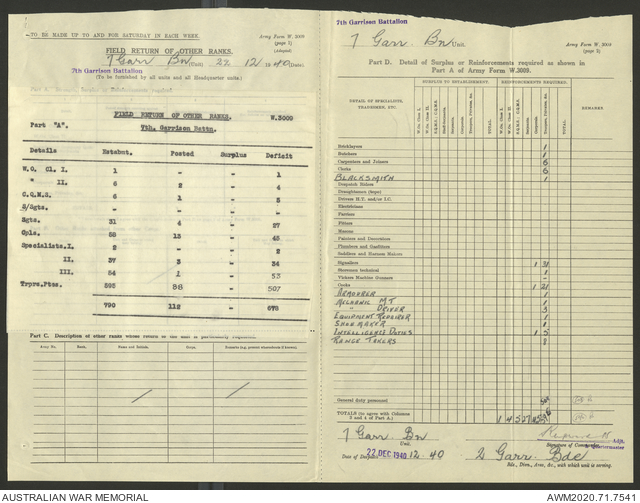 TO BE MADE UP TO AND FOR SATURDAY IN EACH WEEK.
Army Form W. 3009
(page 1)
(Adapted)
FIELD RETURN OF OTHER RANKS.
7 Garr Bn (Unit) 22 12 1940 (Date).
7th Garrison Battalion
(To be furnished by all units and all Headquarter units.)
FIELD RETURN OF OTHER RANKS. W.3009
Part "A". 7th. Garrison Battn.
Details Establmt. Posted Surplus Deficit
W.O. Cl. I. 1 " " 1
" II. 6 2 " 4
C.Q.M.S. 6 1 "
S/Sgts. " " " "
Sgts. 31 4 " 27
Cpls. 58 13 " 45
Specialists.I. 2 " " 2
II. 37 3 " 34
III. 54 1 " 53
Trprs.Ptes. 595 88 " 507
790 112 678
Part C. Description of other ranks whose return to the unit is particularly requested.
Army No. Rank. Name and Initials. Corps. Remarks (e.g. present whereabouts if known).
7th Garrison Battalion
7 Garr. Bn Unit.
Army Form W. 3009
(page 2)
Part D. Detail of Surplus or Reinforcements required as shown in
Part A of Army Form W.3009.
DETAIL OF SPECIALISTS,
TRADESMEN, ETC.
SURPLUS TO ESTABLISHMENT.
REINFORCEMENTS REQUIRED.
REMARKS
W.Os. Class I.
W.Os. Class II.
Sergeants.
TOTAL.
Bricklayers 1
Butchers 1
Carpenters and Joiners 6
Clerks 6
BLACKSMITH 1
Despatch Riders
Draughtsmen (topo)
Drivers H.T. and/or I.C.
Electricians
Farriers
Fitters
Masons
Painters and Decorators
Plumbers and Gasfitters
Saddlers and Harness Makers
Signallers 1 31
Storemen technical 1
Vickers Machine Gunners
Cooks 1 21
ARMOURER 1
MECHANIC MT 1
" DRIVER 3
EQUIPMENT REPAIRER 1
SHOEMAKER 1
INTELLIGENCE DUTIES 1 5
RANGE TAKERS 8
General duty personnel
TOTALS (to agree with Columns
5 and 4 of Part A.)
7 Garr Bn
Unit.
Signature of Commander.
Date of Despatch 22 DEC 1940 12.40
2 Garr. Bde
Bde., Divn., Area, &c., with which unit is serving.
AUSTRALIAN WAR MEMORIAL
AWM2020.71.7541